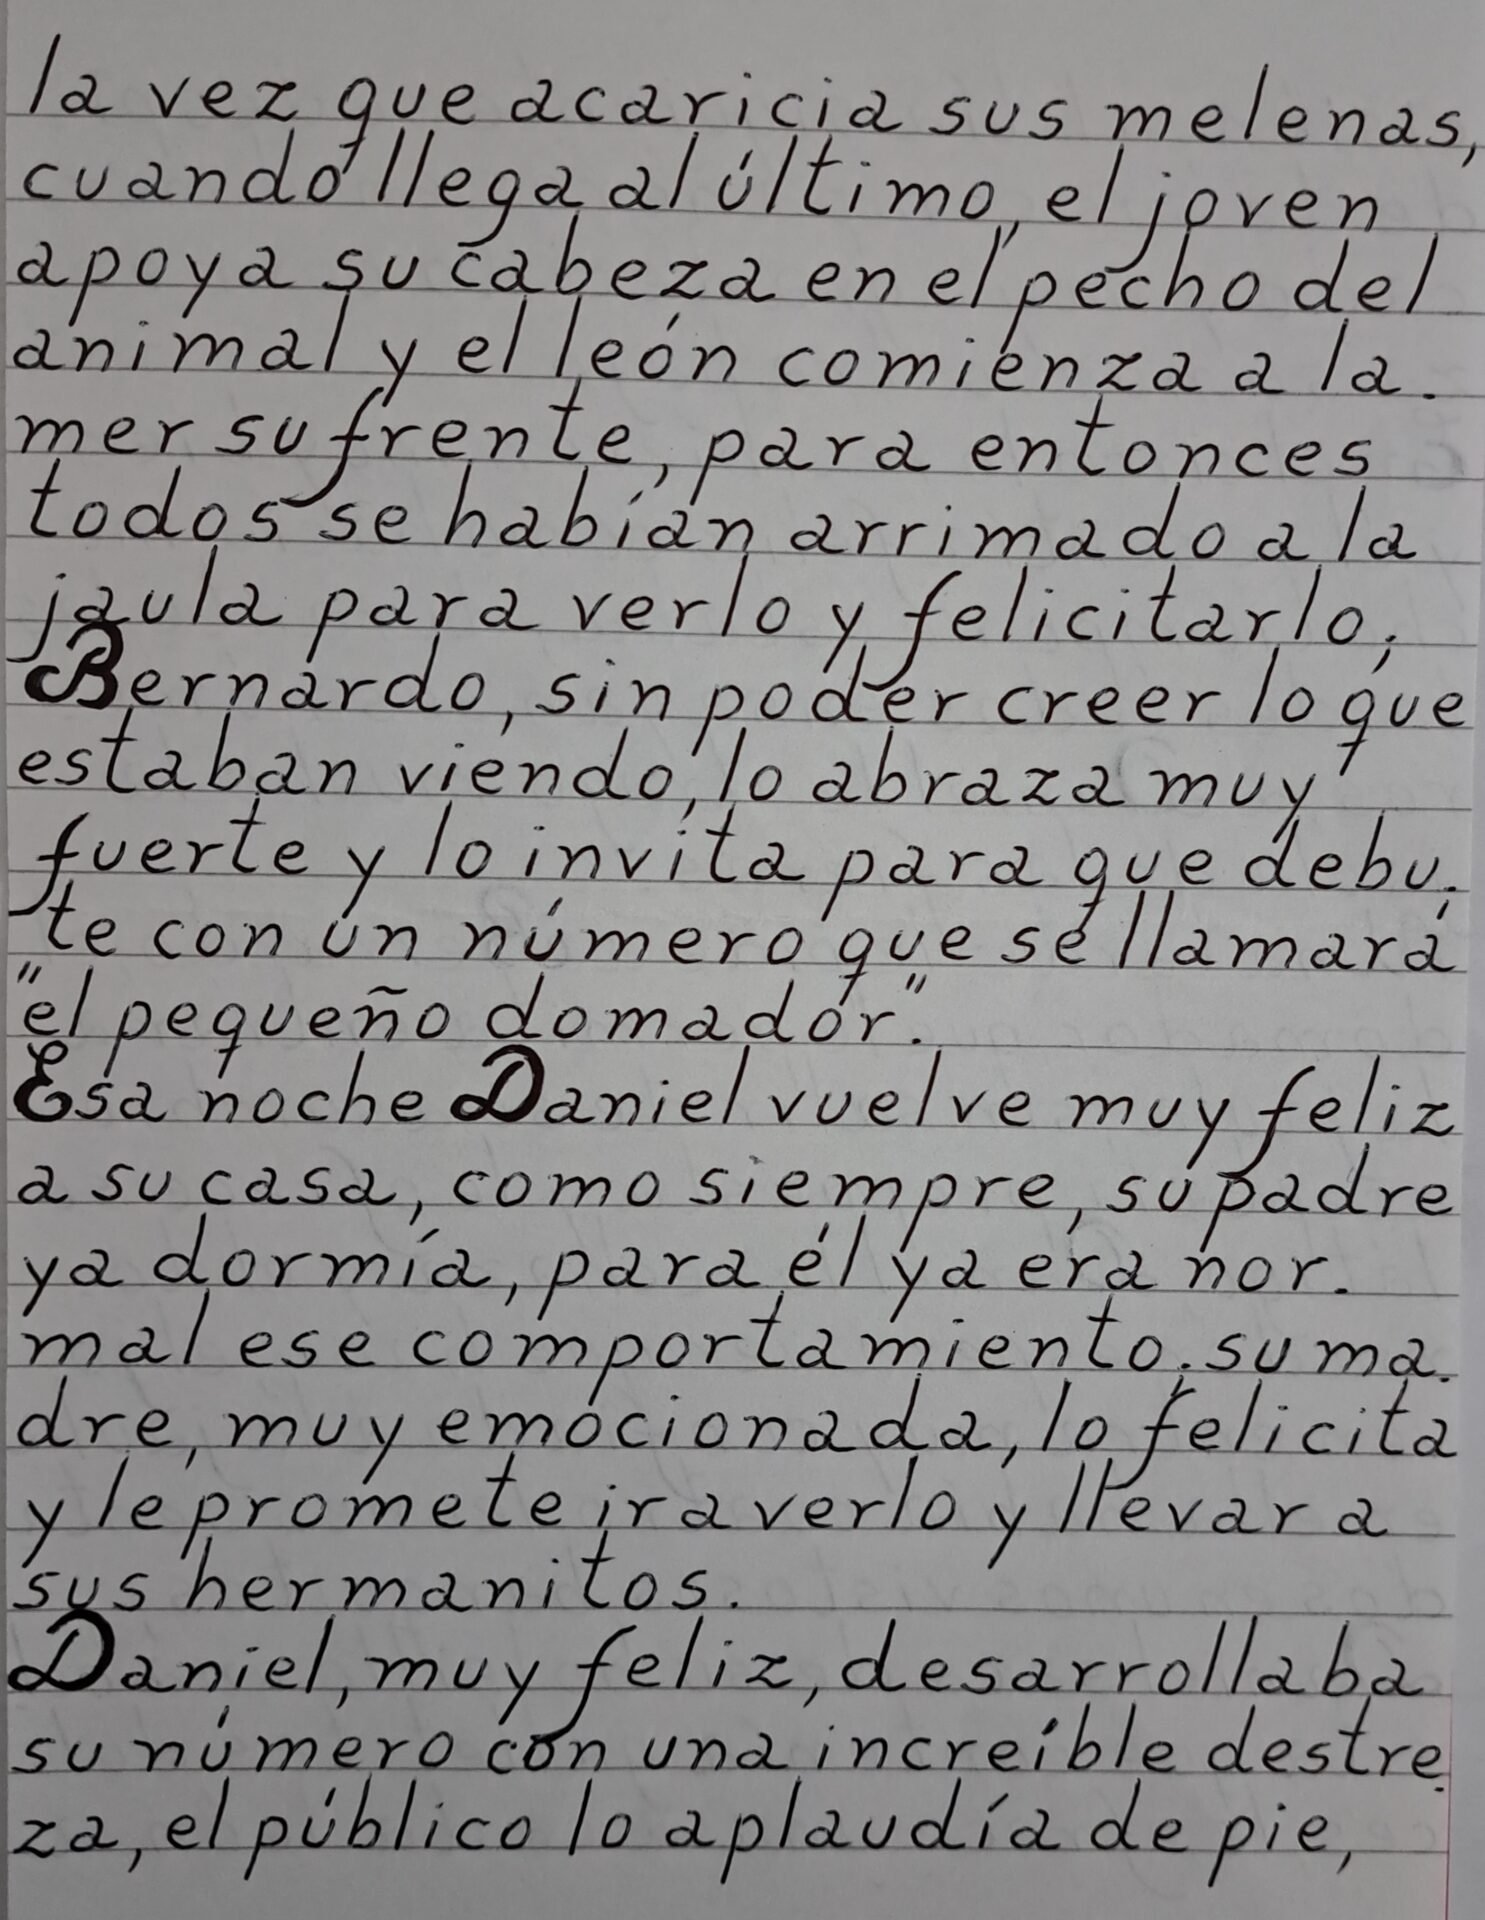 la vez que acaricia sus melenas,
cuando llega al último, el joven
apoya su cabeza en el pecho del
animal y el león comienza a la.
mer su frente, para entonces
todos se habían arrimado a la
jaula para verlo y felicitarlo;
Bernardo, sin poder creer lo que
estaban viendo, lo abraza muy
fuerte y lo invita para que debu.
te con un número que se llamará
"el pequeño domador".
Esa noche Daniel vuelve muy feliz
a su casa, como siempre, su padre
ya dormía, para él ya era nor.
mal ese comportamiento. su ma.
dre, muy emocionada, lo felicita
y le promete ir a verlo y llevar a
sus hermanitos.
Daniel, muy feliz, desarrollaba
su número con una increíble destre.
za, el público lo aplaudía de pie,